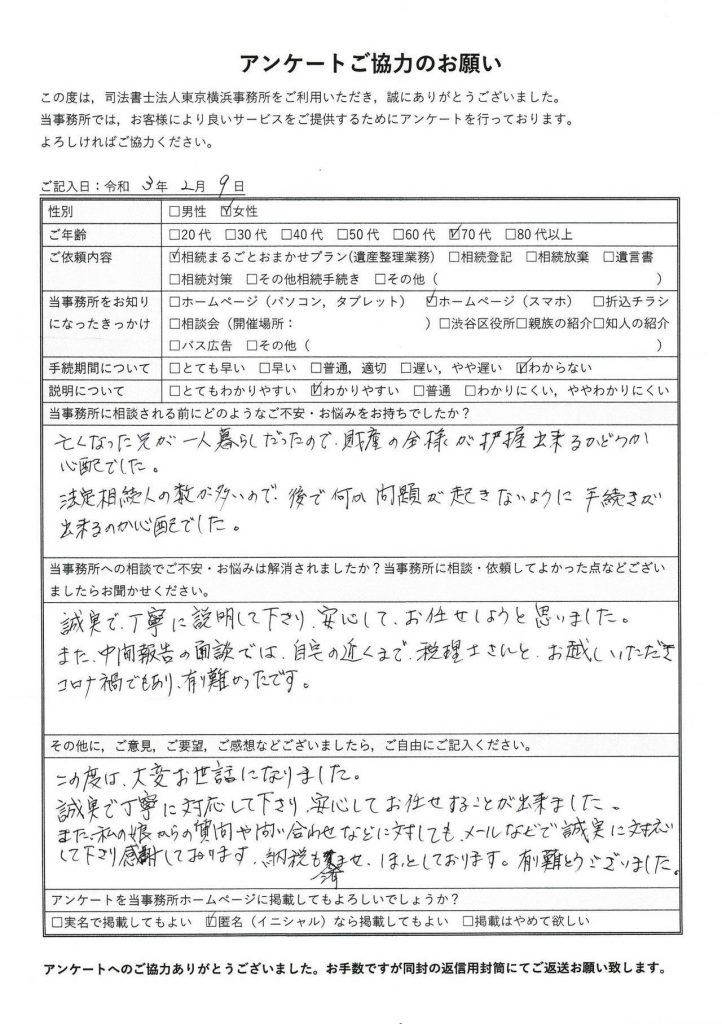 アンケートご協力のお願い
この度は，司法書士法人東京横浜事務所をご利用いただき，誠にありがとうございました。
当事務所では，お客様により良いサービスをご提供するためにアンケートを行っております。
よろしければご協力ください。
ご記入日：令和 3年 2月 9日
性別 □男性 ☑女性
ご年齢 □20代 □30代 □40代 □50代 □60代 ☑70代 □80代以上
ご依頼内容 ☑相続まるごとおまかせプラン(遺産整理業務) □相続登記 □相続放棄 □遺言書
□相続対策 □その他相続手続き □その他（ ）
当事務所をお知り □ホームページ（パソコン，タブレット） ☑ホームページ（スマホ） □折込チラシ
になったきっかけ □相談会（開催場所： ）□渋谷区役所□親族の紹介□知人の紹介
□バス広告 □その他（ ）
手続期間について □とても早い □早い □普通，適切 □遅い，やや遅い ☑わからない
説明について □とてもわかりやすい ☑わかりやすい □普通 □わかりにくい，ややわかりにくい
当事務所に相談される前にどのようなご不安・お悩みをお持ちでしたか？
亡くなった兄が一人暮らしだったので、財産の全様が把握出来るかどうか
心配でした。
法定相続人の数が多いので、後で何か問題が起きないように手続きが
出来るのか心配でした。
当事務所への相談でご不安・お悩みは解消されましたか？当事務所に相談・依頼してよかった点などござい
ましたらお聞かせください。
誠実で、丁寧に説明して下さり、安心して、お任せしようと思いました。
また、中間報告の面談では、自宅の近くまで、税理士さんと、お越しいただき
コロナ禍でもあり、有難かったです。
その他に，ご意見，ご要望，ご感想などございましたら，ご自由にご記入ください。
この度は、大変お世話になりました。
誠実で丁寧に対応して下さり、安心してお任せすることが出来ました。
また、私の娘からの質問や問い合わせなどに対しても、メールなどで誠実に対応
して下さり感謝しております。納税も済ませ、ほっとしております。有難とうございました。
アンケートを当事務所ホームページに掲載してもよろしいでしょうか？
□実名で掲載してもよい ☑匿名（イニシャル）なら掲載してもよい □掲載はやめて欲しい
アンケートへのご協力ありがとうございました。お手数ですが同封の返信用封筒にてご返送お願い致します。